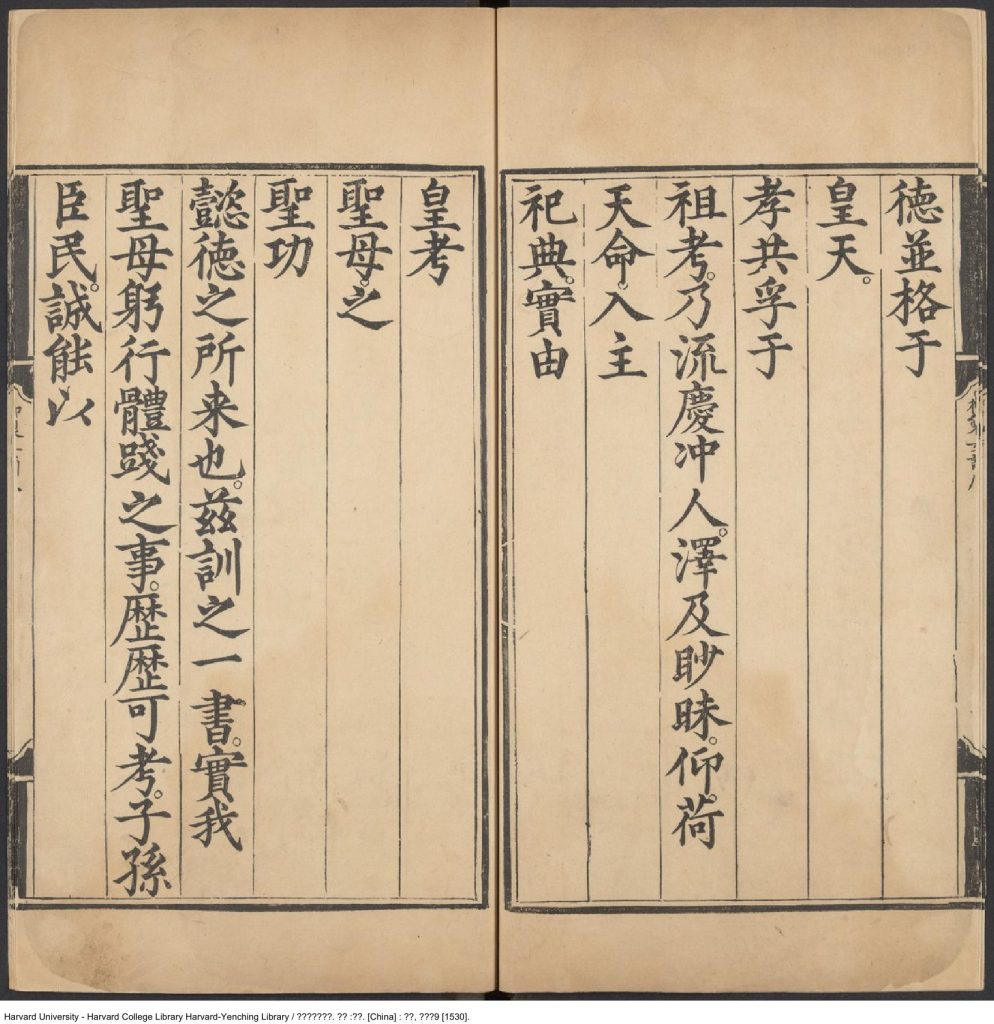 德並格于
皇天。
孝共孚于
祖考。乃流慶冲人。澤及眇昧。仰荷
天命。入主
祀典。實由
皇考
聖母。之
聖功
懿德之所来也。兹訓之一書。實我
聖母躬行體踐之事。歷歷可考。子孫
臣民。誠能以
Harvard University - Harvard College Library Harvard-Yenching Library / ???????. ?? :??. [China] : ??, ???9 [1530].